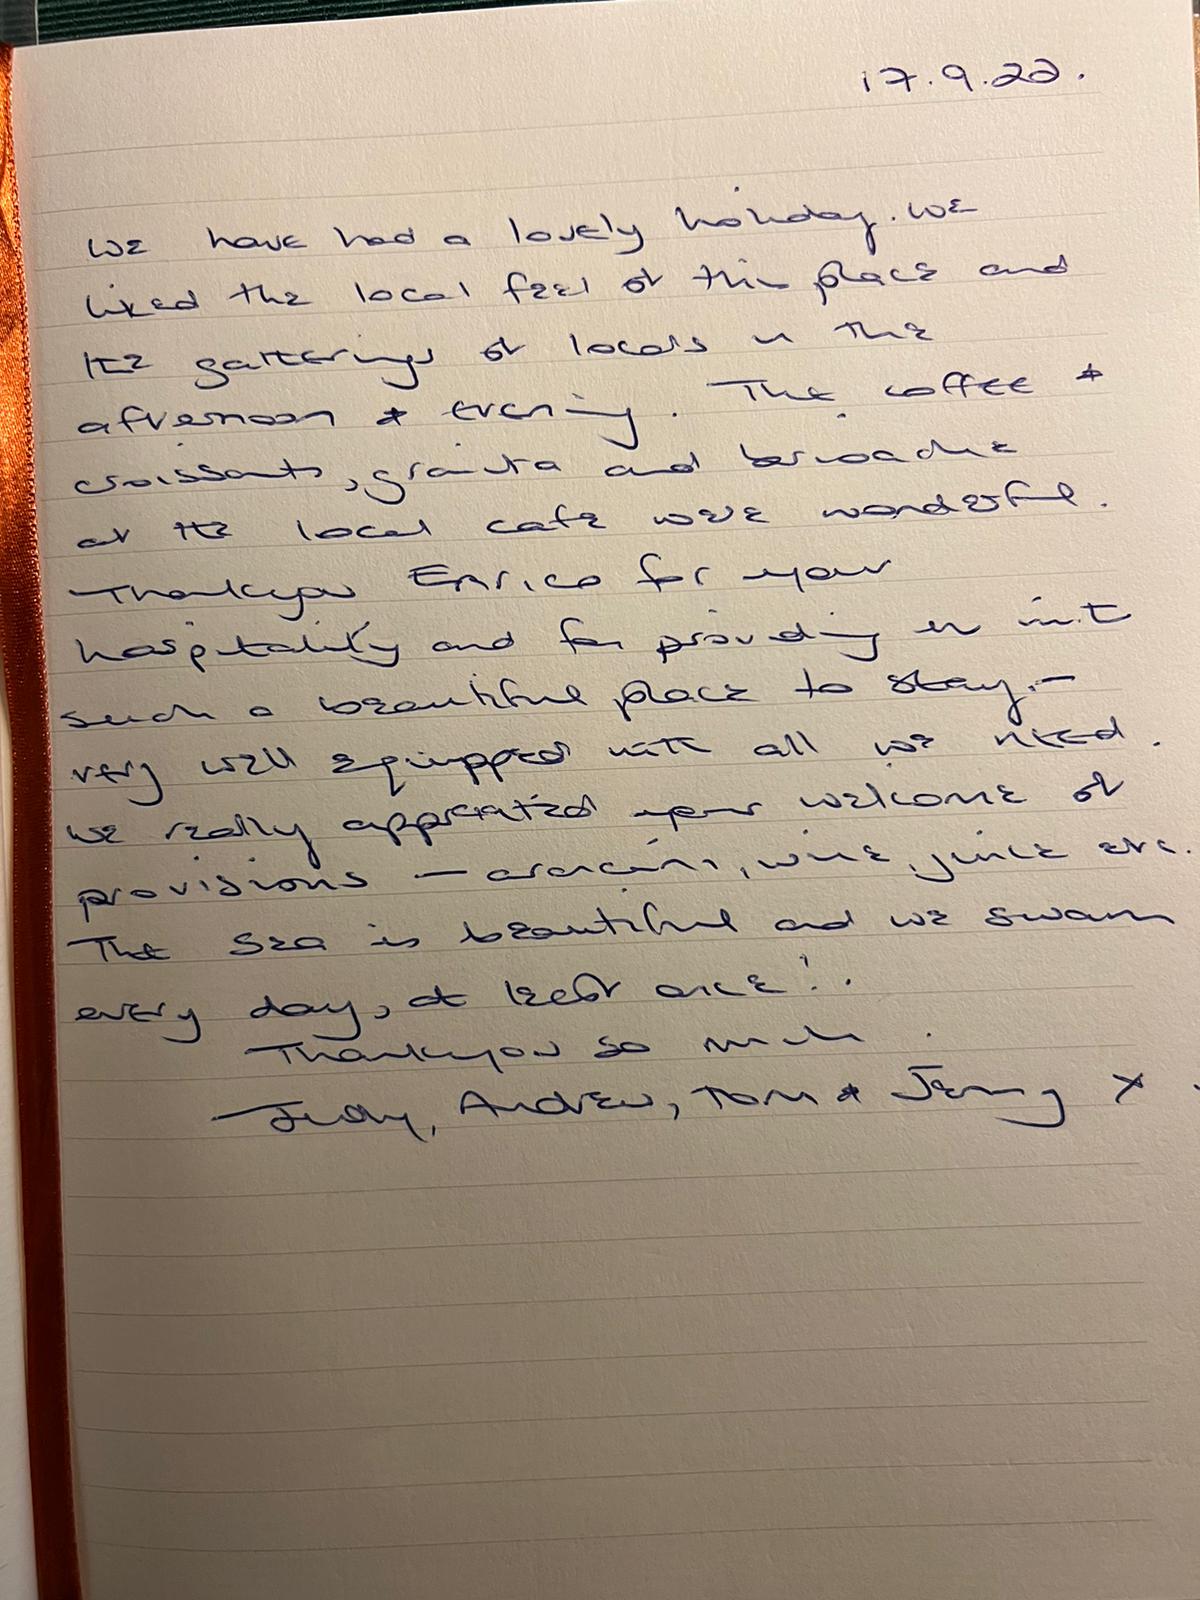 17.9.22.
We have had a lovely holiday. We
liked the local feel of this place and
the gatherings of locals in the
afternoon & evening. The coffee &
croissants, granita and
at the local cafe were wonderful.
Thankyou Enrico for your
hospitality and for providing us with
such a beautiful place to stay -
very well equipped with all we need.
We really appreciated your welcome of
provisions - arancini, wine, juice etc.
The sea is beautiful and we swam
every day, at least once!.
Thankyou so much.
Judy, Andrew, Tom & Jenny x